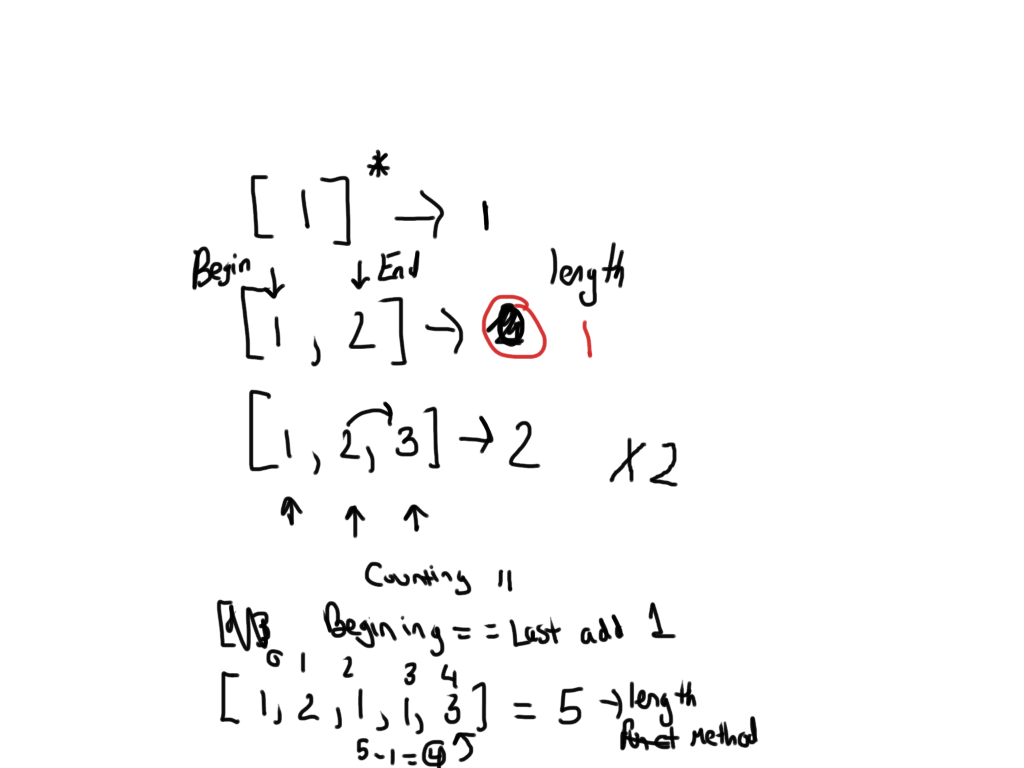 [ 1 ] * → 1
Begin ↓ ↓ End length
[ 1 , 2 ] → 1
[ 1 , 2 , 3 ] → 2 X2
↑ ↑ ↑
Counting 11
Begining == Last add 1
0 1 2 3 4
[ 1, 2, 1, 1, 3 ] = 5 → length
5-1=4 method